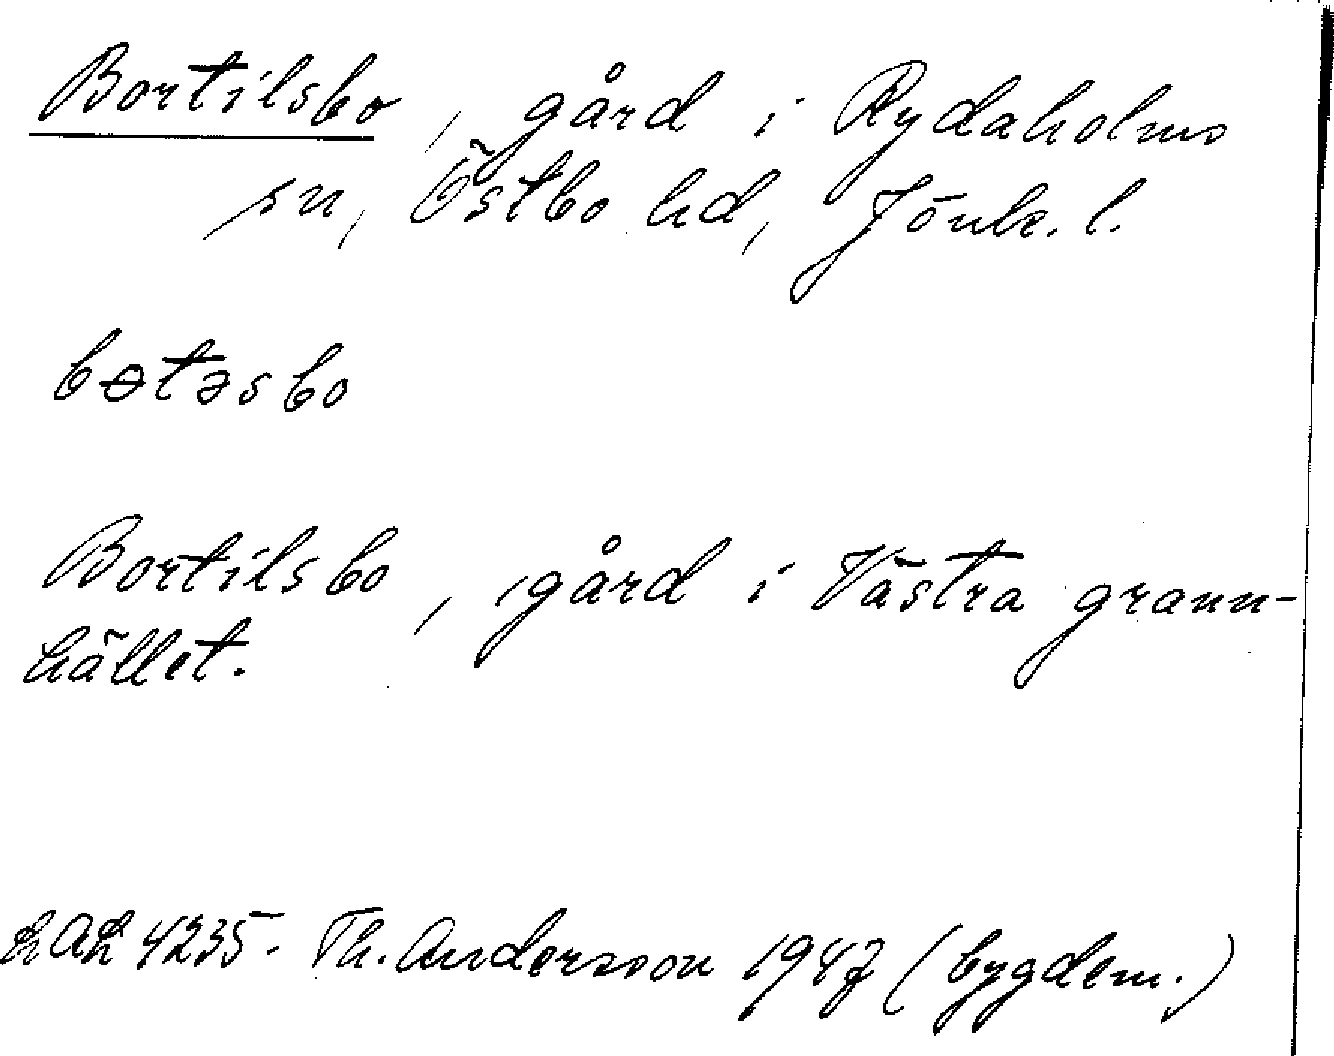 Bortilsbo, gård i Rydaholms
sn, Östbo hd, Jönk. l.
bɵtəsbo
Bortilsbo, gård i Västra grann-
hället.
LAL 4235. Th. Andersson 1947 (bygdem.)